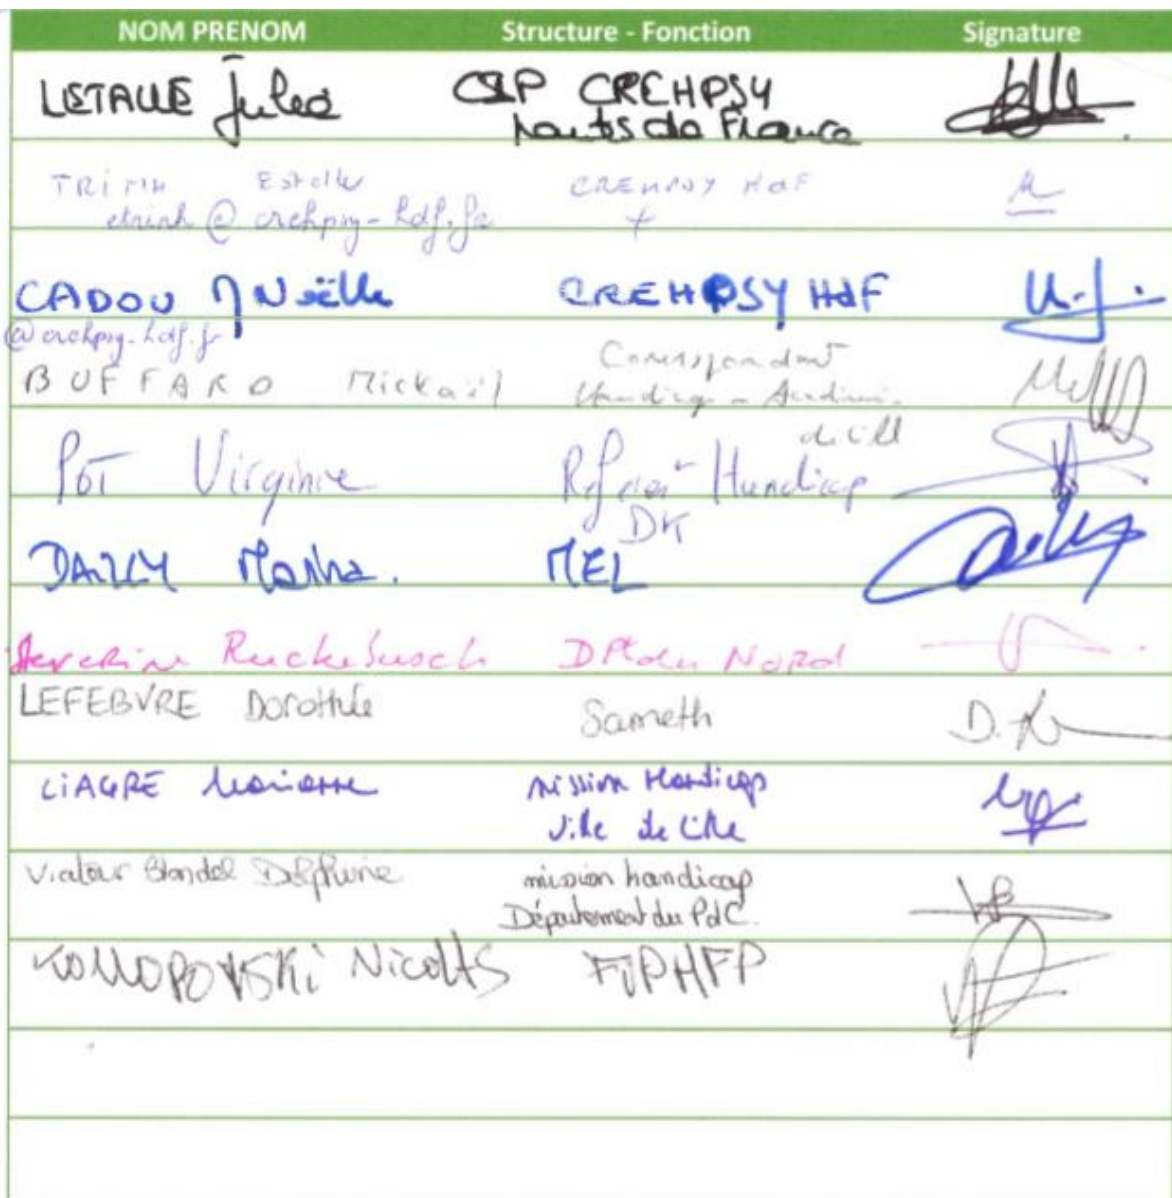 NOM PRENOM Structure - Fonction Signature
LETALLE Julea CSP CREHPSY
Hauts de France
TRINH Estelle CREHPSY HdF
etrinh@crehpsy-hdf.fr
CADOU M Noëlle CREHPSY HdF
@crehpsy-hdf.fr
BUFFARD Mickaël Correspondant
Handicap - Académie
de Lille
Pot Virginie Référent Handicap
DK
DAILLY MEL
Severine Ruckebusch DPt du Nord
LEFEBVRE Dorothée Sameth
LiAGRE mission Handicap
Ville de Lille
Viatour Blondel Delphine mission handicap
Département du PdC.
NicolAS FIPHFP